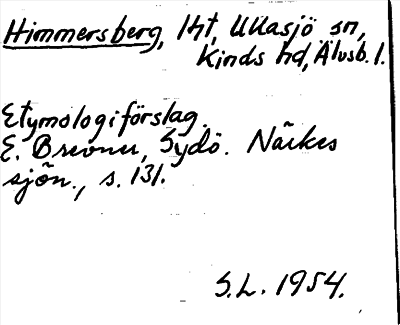 Himmersberg, 1ht, Ullasjö sn,
Kinds hd, Älvsb. l.
Etymologiförslag.
E. Brevner, Sydö. Närkes
sjön., s. 131.
S.L. 1954.